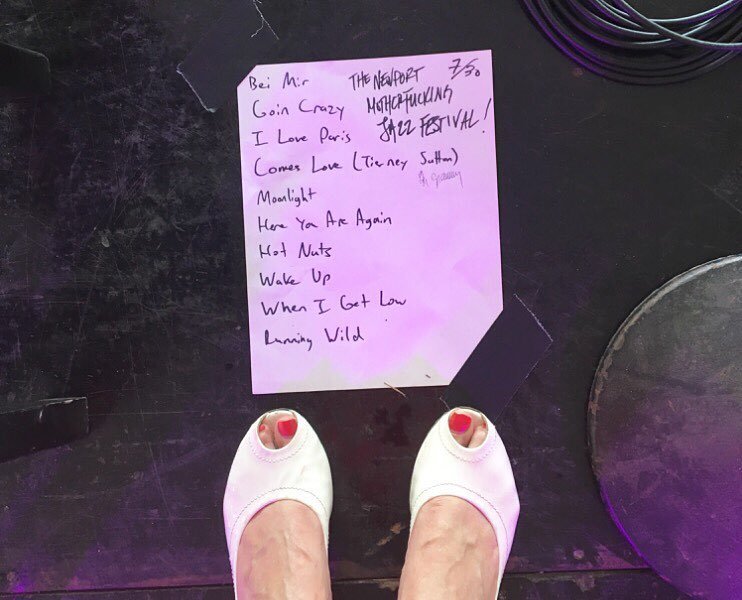 Bei Mir
THE NEWPORT
7/30
Goin Crazy
MOTHERFUCKING
I Love Paris
JAZZ FESTIVAL!
Comes Love (Tierney Sutton)
Moonlight
Here You Are Again
Hot Nuts
Wake Up
When I Get Low
Running Wild